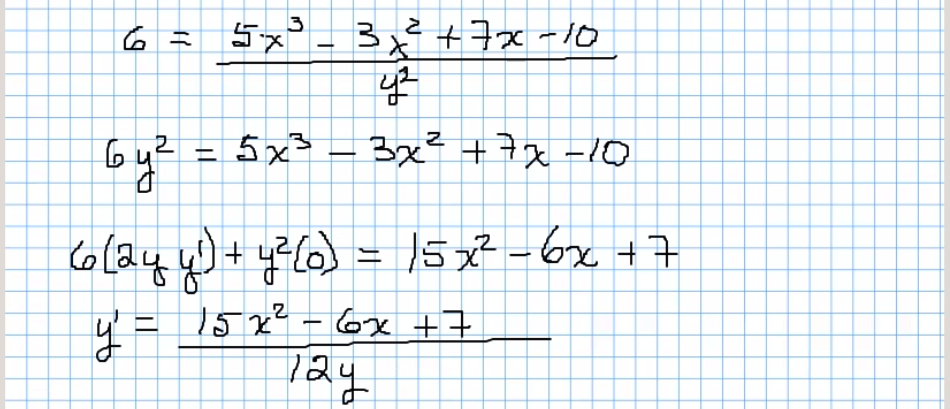 6 = 5x³ - 3x² + 7x - 10
y²
6y² = 5x³ - 3x² + 7x - 10
6(2y y') + y²(0) = 15x² - 6x + 7
y' = 15x² - 6x + 7
12y